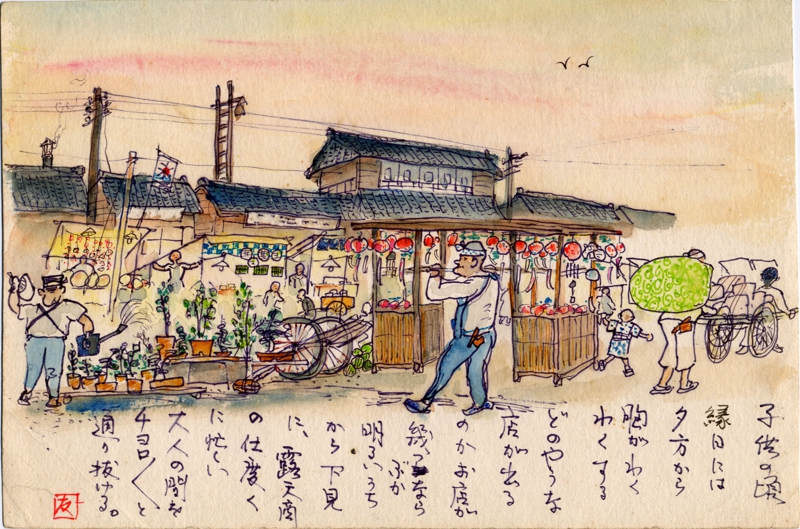 子供の頃
縁日には
夕方から
胸がわく
わくする
どのやうな
店が出る
のかお店が
幾つなら
ぶか
明るいうち
から下見
に、露天商
の仕度く
に忙しい
大人の間を
チヨロ〱と
通り抜ける。
友